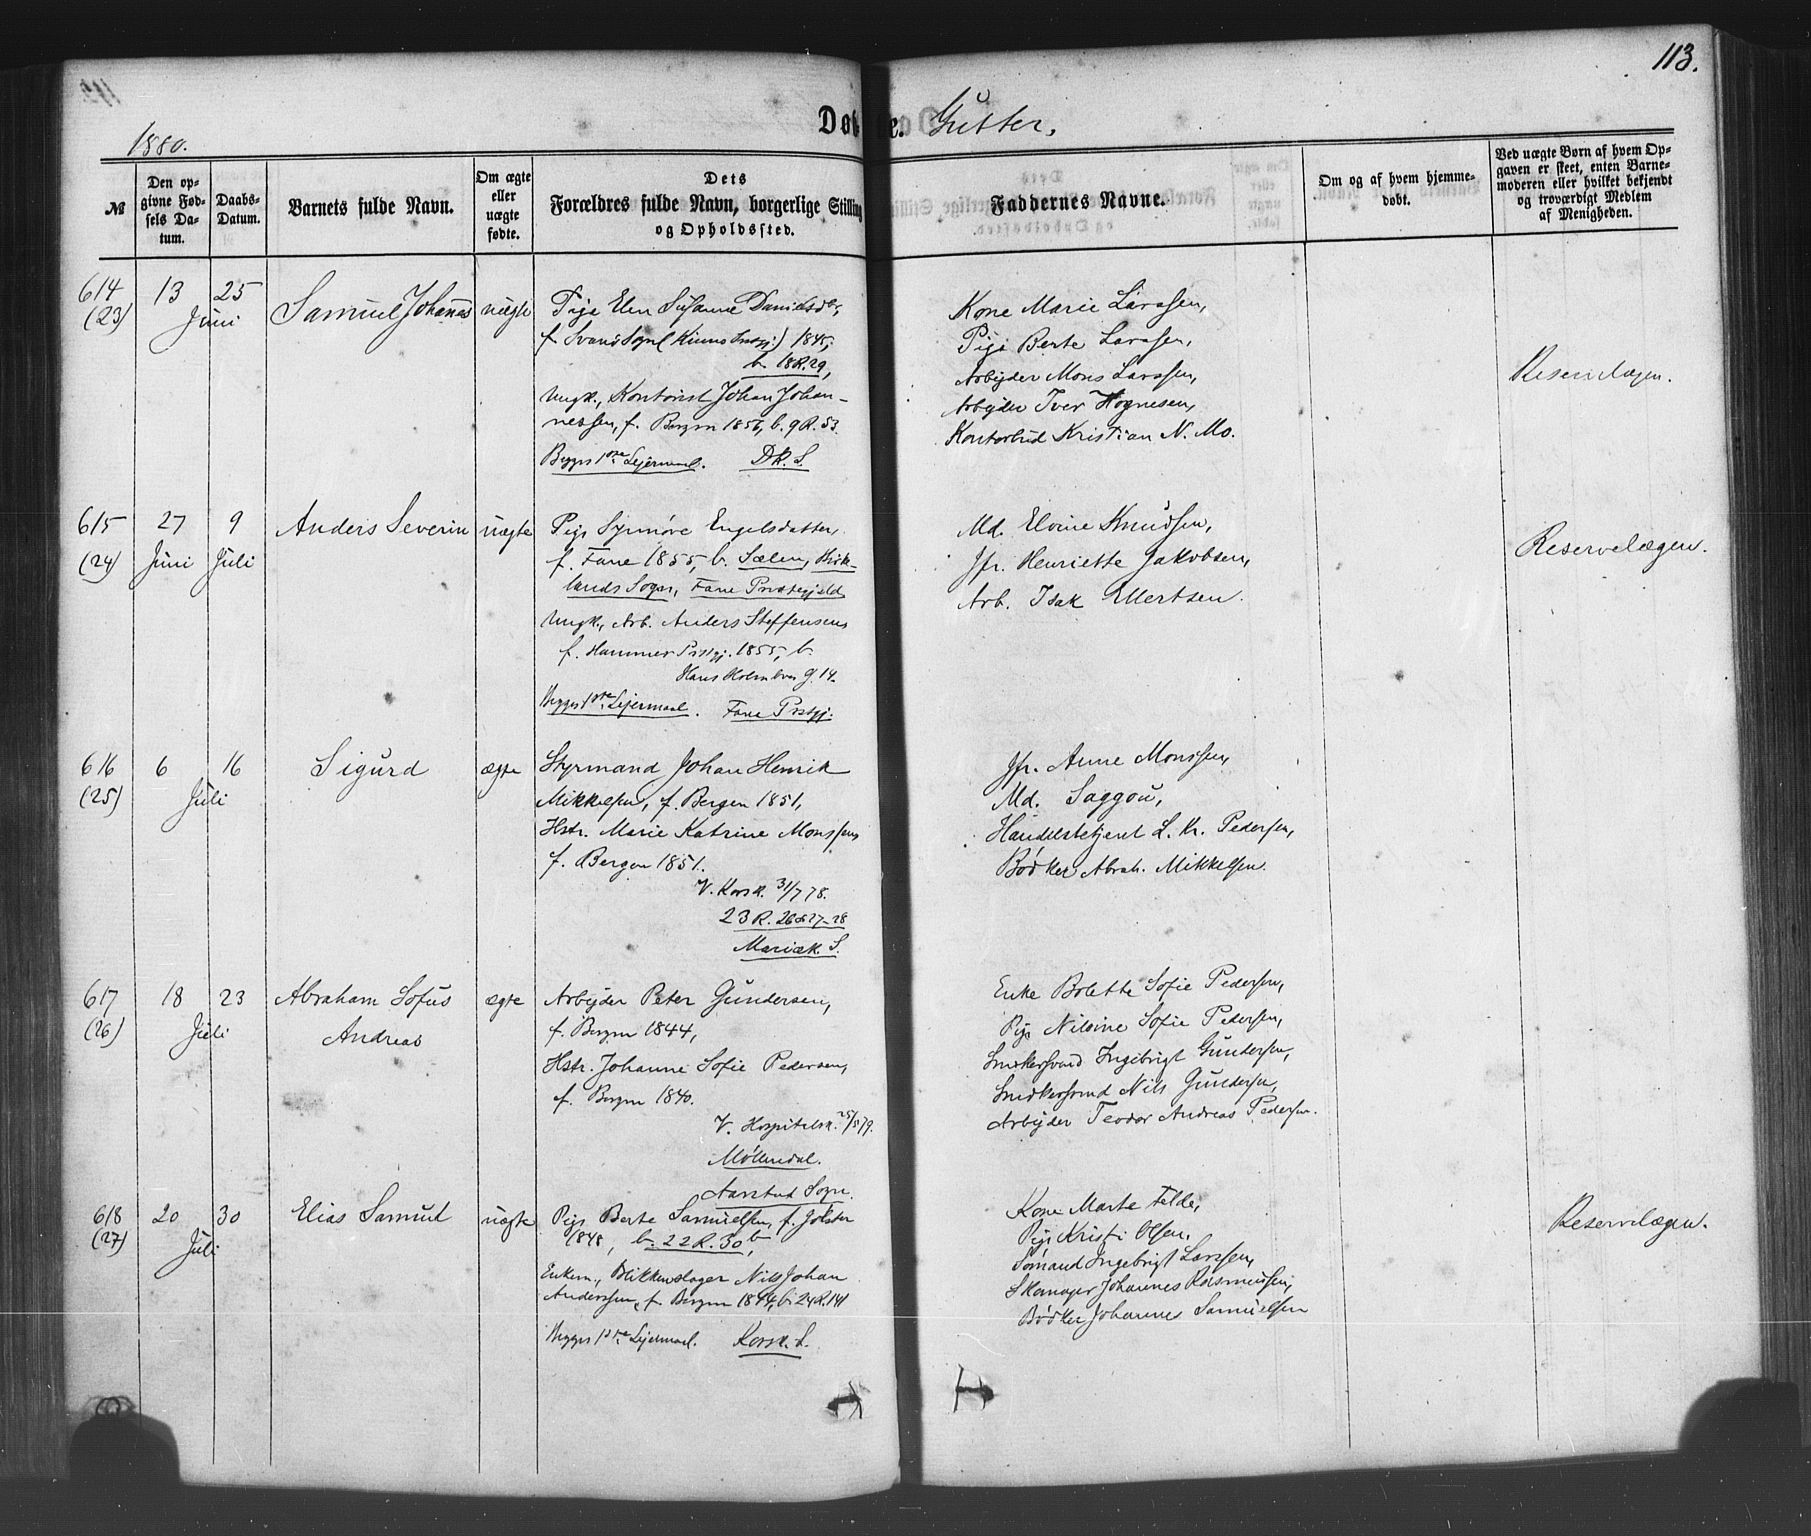 113.
1880.
Døbte. Gutter.
№
Den opgivne Fødsels Datum.
Daabs-Datum.
Barnets fulde Navn.
Om ægte eller uægte fødte.
Dets Forældres fulde Navn, borgerlige Stilling og Opholdssted.
Faddernes Navne.
Om og af hvem hjemmedøbt.
Ved uægte Børn af hvem Opgaven er skeet, enten Barnemoderen eller hvilket bekjendt og troværdigt Medlem af Menigheden.
614 (23)
13 25 Juni
Samuel Johanes
uægte
Pige Elen Susanne Danielsdr,
f. Svanö Sogn( Kinns ) 1845,
b. 18R.29,
Ungk., Kontorist Johan Johan-
nessen, f. Bergen 1856, b. 9R.53.
Begges 1ste Lejermaal. DK. S.
Kone Marie Larssen,
Pige Berte Larssen,
Arbejder Mons Larssen,
Arbejder Iver Hognesen,
Kontorbud Kristian N. Mo.
Reservelægen.
615 (24)
27 Juni
9 Juli
Anders Severin
uægte
Pige Synnøve Engelsdatter
f. Fane 1855, b. Sælen, Birke-
lands Sogn, Fane Prstegjeld
Ungk., Arb. Anders Steffensen,
f. Hammer Prstgj. 1855, b.
Hans Holmboes g. 14.
Begges 1ste Lejermaal. Fane Prstgj.
Md. Elvine Knudsen,
Jfr. Henriette Jakobsen,
Arb. Isak Ellertsen.
Reservelægen.
616 (25)
6 16 Juli
Sigurd
ægte
Styrmand Johan Henrik
Mikkelsen, f. Bergen 1851,
Hstr. Marie Katrine Monssen
f. Bergen 1851.
V. Korsk. 31/7 78.
23R. 26&27-28
Mariæk S.
Jfr. Anne Monssen,
Md. Saggou,
Handelsbetjent L. Kr. Pedersen,
Bødker Abrah. Mikkelsen.
617 (26)
18 23 Juli
Abraham Sofus
Andreas
ægte
Arbejder Peter Gundersen,
f. Bergen 1844,
Hstr. Johanne Sofie Pedersen,
f. Bergen 1840.
V. Hospitalsk. 25/5 79.
Møllendal.
Aarstad Sogn.
Enke Bolette Sofie Pedersen,
Pige Nilsine Sofie Pedersen,
Ingebrigt Gundersen,
Nils Gundersen,
Arbejder Teodor Andreas Pedersen.
618 (27)
20 30 Juli
Elias Samuel
uægte
Pige Berte Samuelsen, f. Jølster
1848, b. 22R.30 b,
Enkem., Blikkenslager Nils Johan
Anderssen, f. Bergen 1844, b. 24R.141
Begges 1ste Lejermaal. Korsk. S.
Kone Marte Felde,
Pige Kristi Olsen,
Sømand Ingebrigt Larssen,
Skomager Johannes Rasmussen,
Bødker Johannes Samuelsen
Reservelægen.